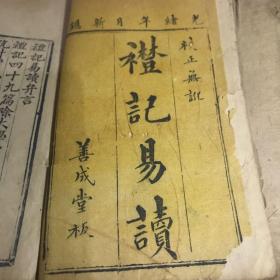 光緒年月新鐫
校正無訛
禮記易讀
善成堂板
禮記易讀弁言
禮記四十九篇除大